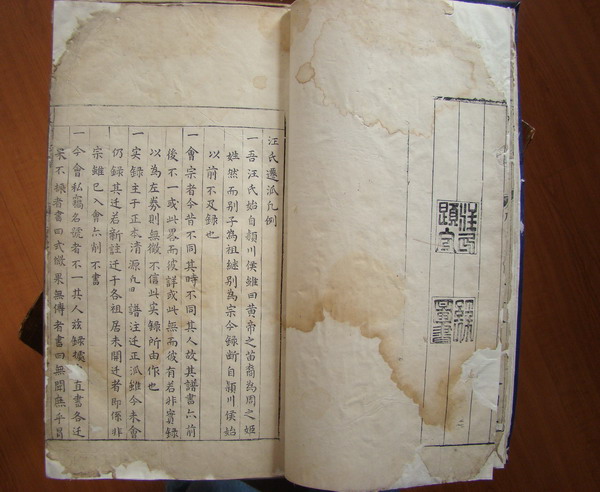 汪氏遷派凡例
一吾汪氏始自潁川侯雖曰黃帝之苗裔為周之姬
姓然而别子為祖継别為宗今録断自潁川侯始
以前不及録也
一會宗者今昔不同其時不同其人故其譜書亦前
後不一或此畧而彼詳或此無而彼有若非實録
以為左券則無徴不信此实録所由作也
一实録主于正本清源凡旧譜注迁正派雖今未會
仍録其迁若新註迁于各祖居未開迁者即係非
宗雖已入會亦削不書
一今會私竊名號者不一其人玆録據直書各迁
果不録者書曰式微果無傳者書曰無聞庶乎冒
汪氏